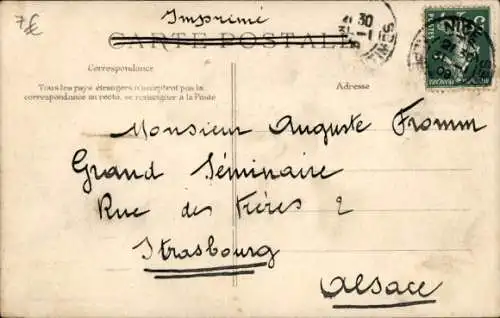 7€
Imprimé
CARTE POSTALE
Correspondance
Tous les pays étrangers n'acceptent pas la
correspondance au recto, se renseigner à la Poste
Adresse
Monsieur Auguste Fromm
Grand Séminaire
Rue des Frères 2
Strasbourg
Alsace